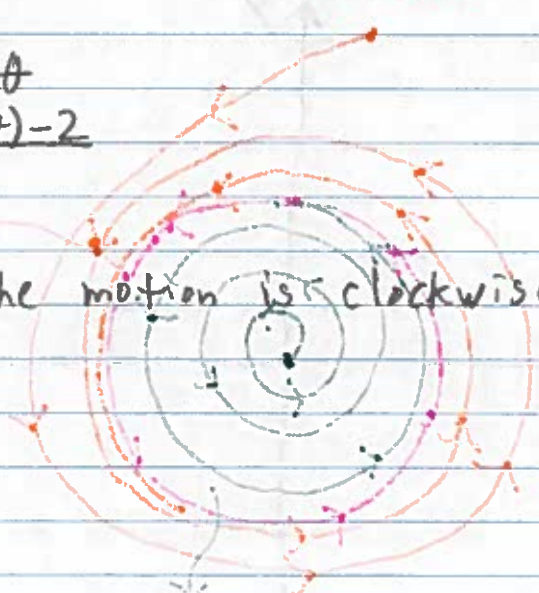 θ
)-2
he motion is clockwis